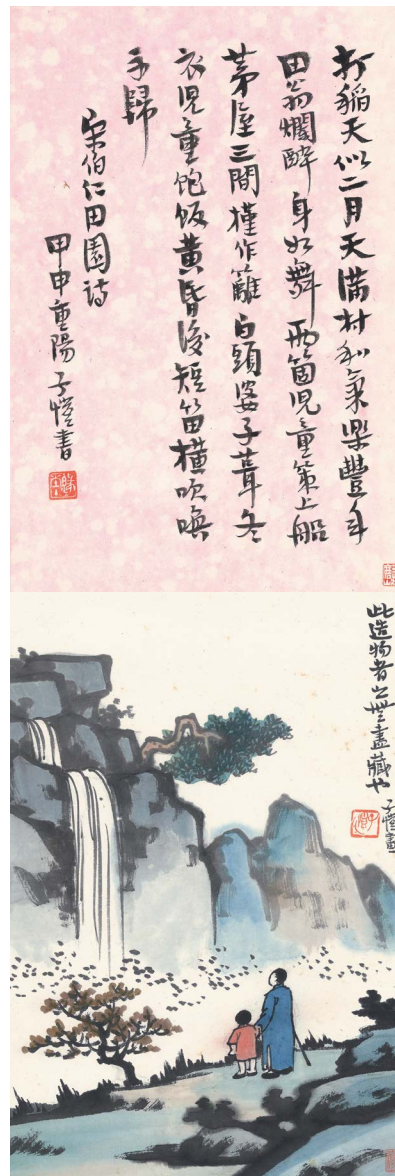 打稻天似二月天滿村和氣樂豐年
田翁爛醉身如舞兩箇兒童策上船
茅屋三間槿作籬白頭婆子葺冬
衣兒童飽飯黃昏後短笛橫吹喚
手歸
宋伯仁田園詩
甲申重陽子愷書
此造物者之無盡藏也
子愷畫